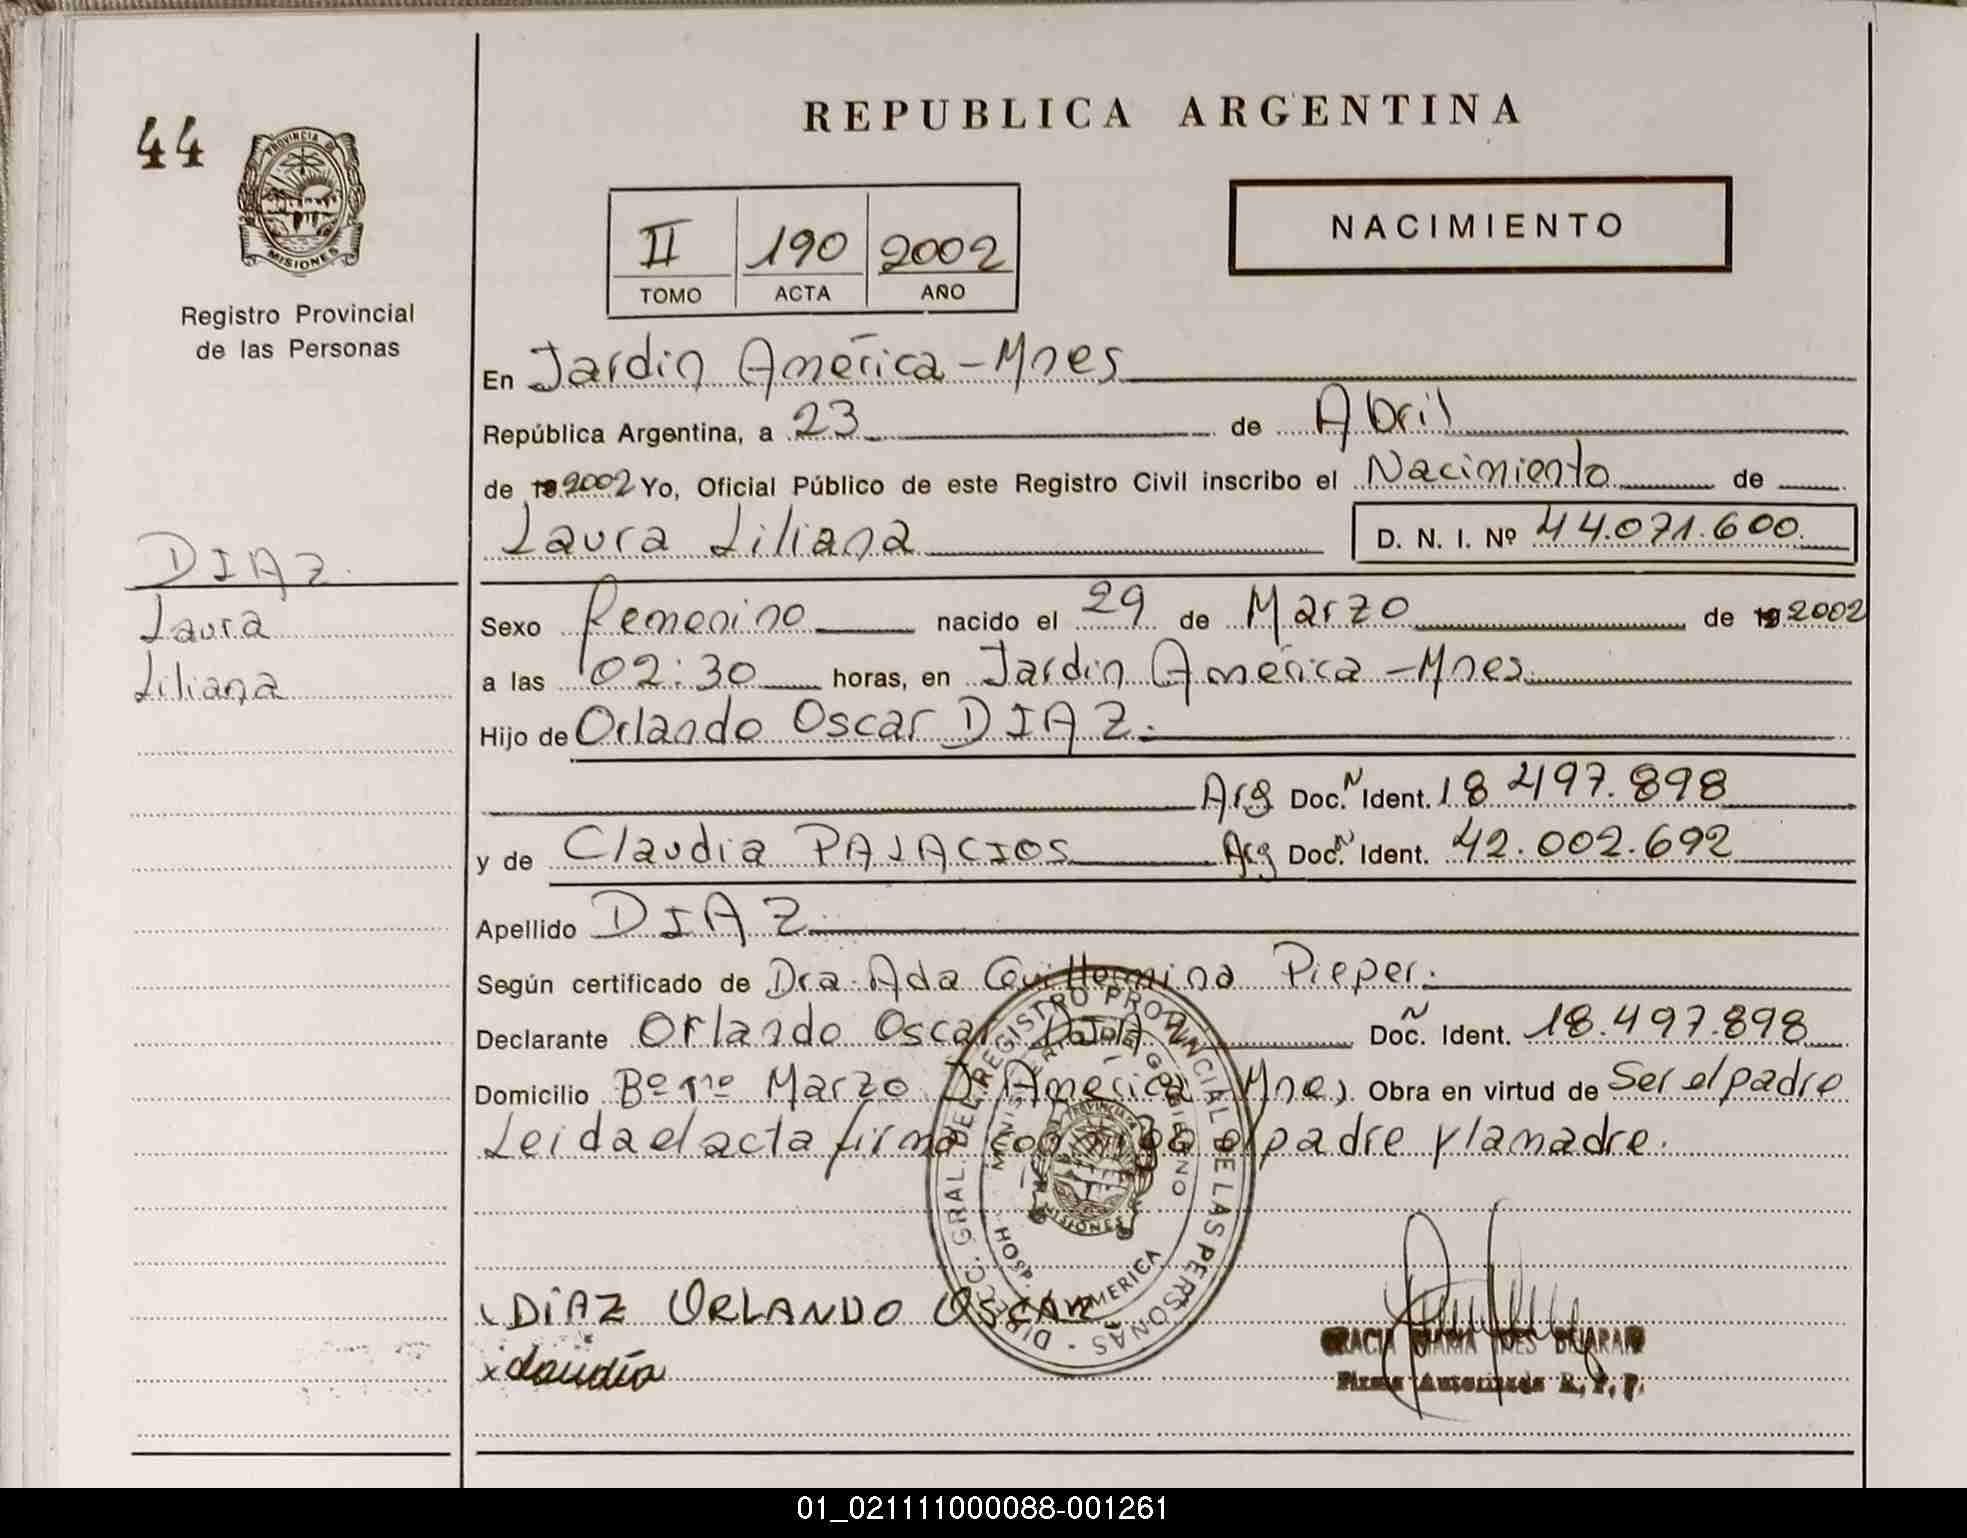 44
PROVINCIA DE
MISIONES
Registro Provincial
de las Personas
REPUBLICA ARGENTINA
NACIMIENTO
II 190 2002
TOMO ACTA AÑO
En Jardin América - Mnes
República Argentina, a 23 de Abril
de 19 2002 Yo, Oficial Público de este Registro Civil inscribo el Nacimiento de
Laura Liliana D. N. I. Nº 44.071.600.
DIAZ.
Laura
Liliana
Sexo Femenino nacido el 29 de Marzo de 19 2002
a las 02:30 horas, en Jardin América - Mnes
Hijo de Orlando Oscar DIAZ.
Arg Doc. N Ident. 18 497.898
y de Claudia PALACIOS Arg Doc. N Ident. 42.002.692
Apellido DIAZ.
Según certificado de Dra. Ada Guillermina Pieper.
Declarante Orlando Oscar Doc. Ident. 18.497.898
Domicilio Bº 1ro Marzo J. América Mnes Obra en virtud de Ser el padre
Leida el acta firma conmigo el padre y la madre.
DIRECC. GRAL. DEL REGISTRO PROVINCIAL DE LAS PERSONAS
MINISTERIO DE GOBIERNO
PROVINCIA DE
MISIONES
HOSP. J. AMERICA
x DIAZ ORLANDO OSCAR
x claudia
GRACIA MARIA INES
Firma Autorizada R. P. P.
01_021111000088-001261